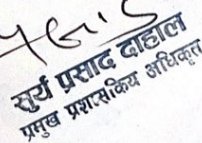 सुर्य प्रसाद दाहाल
प्रमुख प्रशासकिय अधिकृत